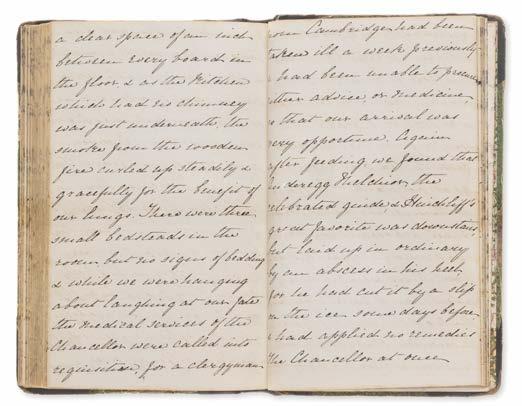 a clear space of an inch
between every board in
the floor, & as the Kitchen
which had no chimney
was just underneath, the
smoke from the wooden
fire curled up steadily &
gracefully for the benefit of
our lungs. There were three
small bedsteads in the
room but no signs of bedding
& while we were hanging
about laughing at our fate
the medical services of the
Chancellor were called into
requisition, for a clergyman
from Cambridge had been
taken ill a week previously
& had been unable to procure
either advice, or medicine,
so that our arrival was
very opportune. Again
after feeding we found that
Anderegg Melchior, the
celebrated guide, & Hinchliff's
great favorite was downstairs
but laid up in ordinary
by an abscess in his heel,
for he had cut it by a slip
on the ice some days before
& had applied no remedies
The Chancellor at once